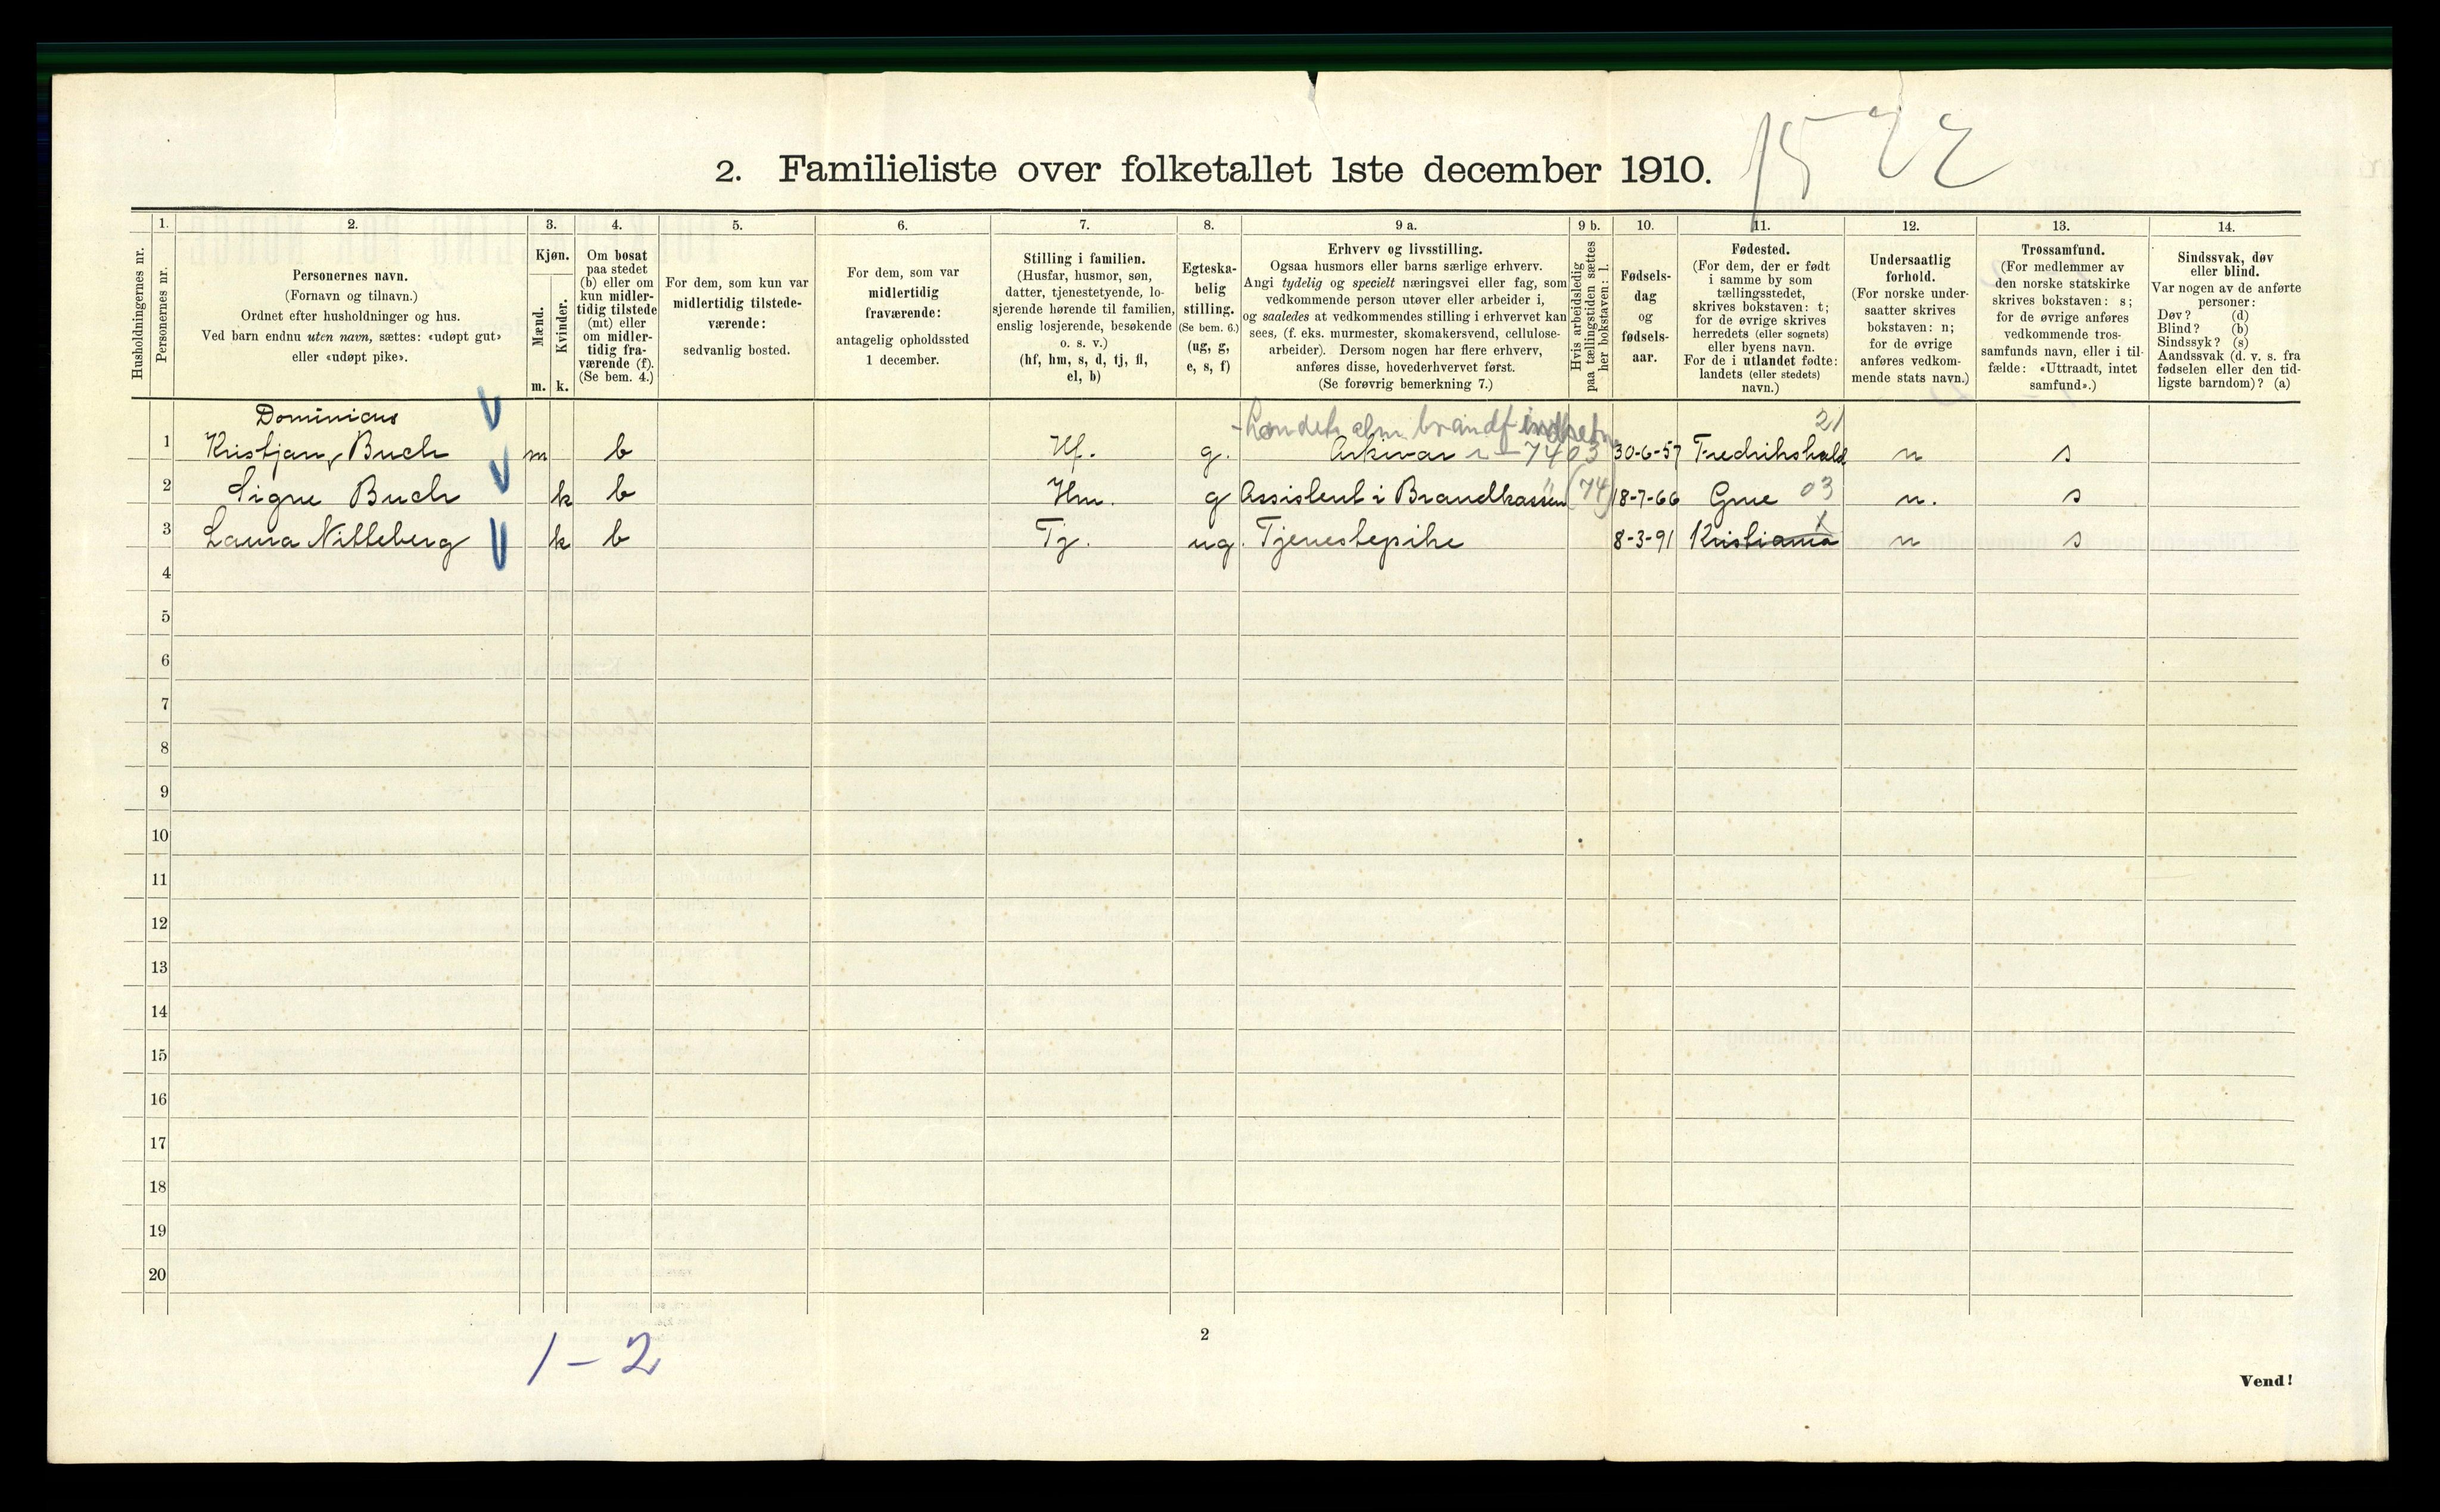 1522
2. Familieliste over folketallet 1ste december 1910.
Husholdningernes nr.
1.
Personernes nr.
2.
Personernes navn.
(Fornavn og tilnavn.)
Ordnet efter husholdninger og hus.
Ved barn endnu uten navn, sættes: «udøpt gut»
eller «udøpt pike».
3.
Kjøn.
Mænd.
m.
Kvinder.
k.
4.
Om bosat
paa stedet
(b) eller om
kun midler-
tidig tilstede
(mt) eller
om midler-
tidig fra-
værende (f).
(Se bem. 4.)
5.
For dem, som kun var
midlertidig tilstede-
værende:
sedvanlig bosted.
6.
For dem, som var
midlertidig
fraværende:
antagelig opholdssted
1 december.
7.
Stilling i familien.
(Husfar, husmor, søn,
datter, tjenestetyende, lo-
sjerende hørende til familien,
enslig losjerende, besøkende
o. s. v.)
(hf, hm, s, d, tj, fl,
el, b)
8.
Egteska-
belig
stilling.
(Se bem. 6.)
(ug, g,
e, s, f)
9 a.
Erhverv og livsstilling.
Ogsaa husmors eller barns særlige erhverv.
Angi tydelig og specielt næringsvei eller fag, som
vedkommende person utøver eller arbeider i,
og saaledes at vedkommendes stilling i erhvervet kan
sees, (f. eks. murmester, skomakersvend, cellulose-
arbeider). Dersom nogen har flere erhverv,
anføres disse, hovederhvervet først.
(Se forøvrig bemerkning 7.)
9 b.
Hvis arbeidsledig
paa tællingstiden sættes
her bokstaven: l.
10.
Fødsels-
dag
og
fødsels-
aar.
11.
Fødested.
(For dem, der er født
i samme by som
tællingsstedet,
skrives bokstaven: t;
for de øvrige skrives
herredets (eller sognets)
eller byens navn.
For de i utlandet fødte:
landets (eller stedets)
navn.)
12.
Undersaatlig
forhold.
(For norske under-
saatter skrives
bokstaven: n;
for de øvrige
anføres vedkom-
mende stats navn.)
13.
Trossamfund.
(For medlemmer av
den norske statskirke
skrives bokstaven: s;
for de øvrige anføres
vedkommende tros-
samfunds navn, eller i til-
fælde: «Uttraadt, intet
samfund».)
14.
Sindssvak, døv
eller blind.
Var nogen av de anførte
personer:
Døv? (d)
Blind? (b)
Sindssyk? (s)
Aandssvak (d. v. s. fra
fødselen eller den tid-
ligste barndom)? (a)
Dominicus brandf 21
1 Kristjan Buch m b Hf. g. Arkivar 74 03 30-6-57 Fredrikshald n s
2 Signe Buch k b Hm. g Assistent i Brandkassen (74) 18-7-66 Grue 03 n. s
3 Laura Nitteberg k b Tj. ug. Tjenestepike 8-3-91 Kristiania t n s
4
5
6
7
8
9
10
11
12
13
14
15
16
17
18
19
20
1 - 2
2
Vend!